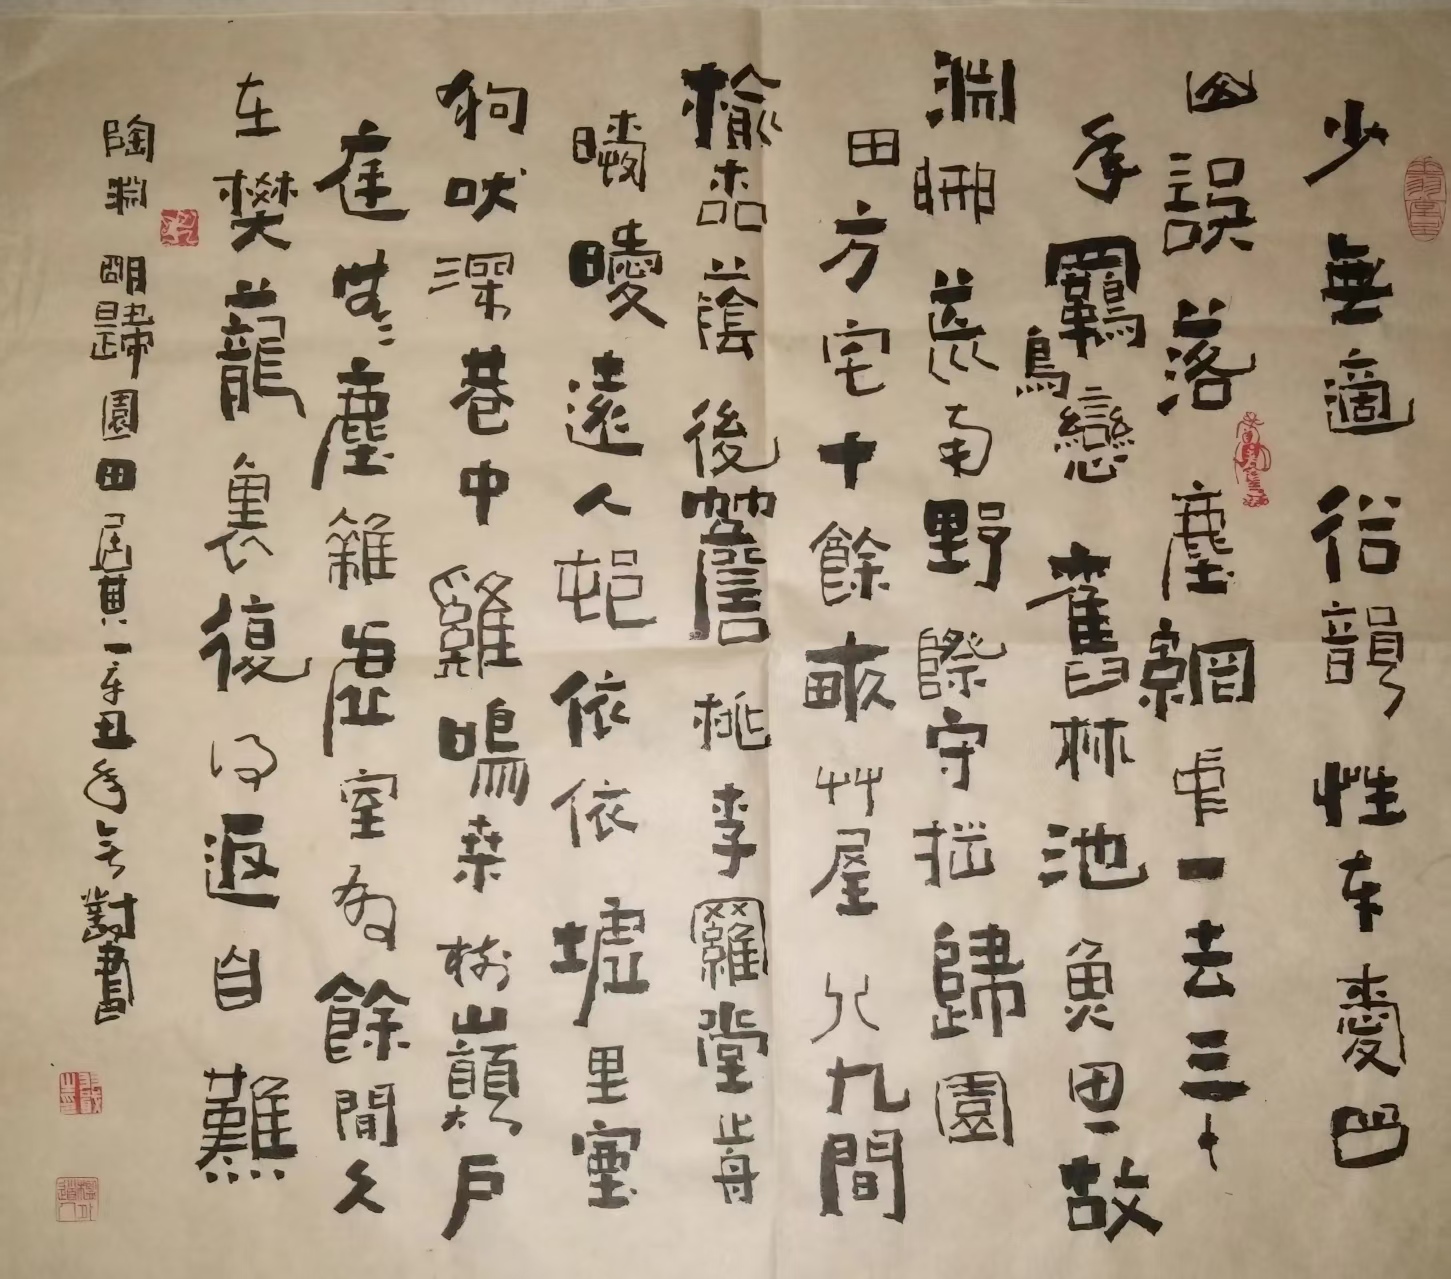 少無適俗韻性本愛丘
山誤落塵網中一去三十
年羈鳥戀舊林池魚思故
淵開荒南野際守拙歸園
田方宅十餘畝艸屋八九間
榆柳蔭後簷桃李羅堂前
曖曖遠人邨依依墟里煙
狗吠深巷中雞鳴桑樹巔戶
庭無塵雜虛室有餘閒久
在樊蘢裏復得返自然
陶淵明歸園田居其一辛丑年對書